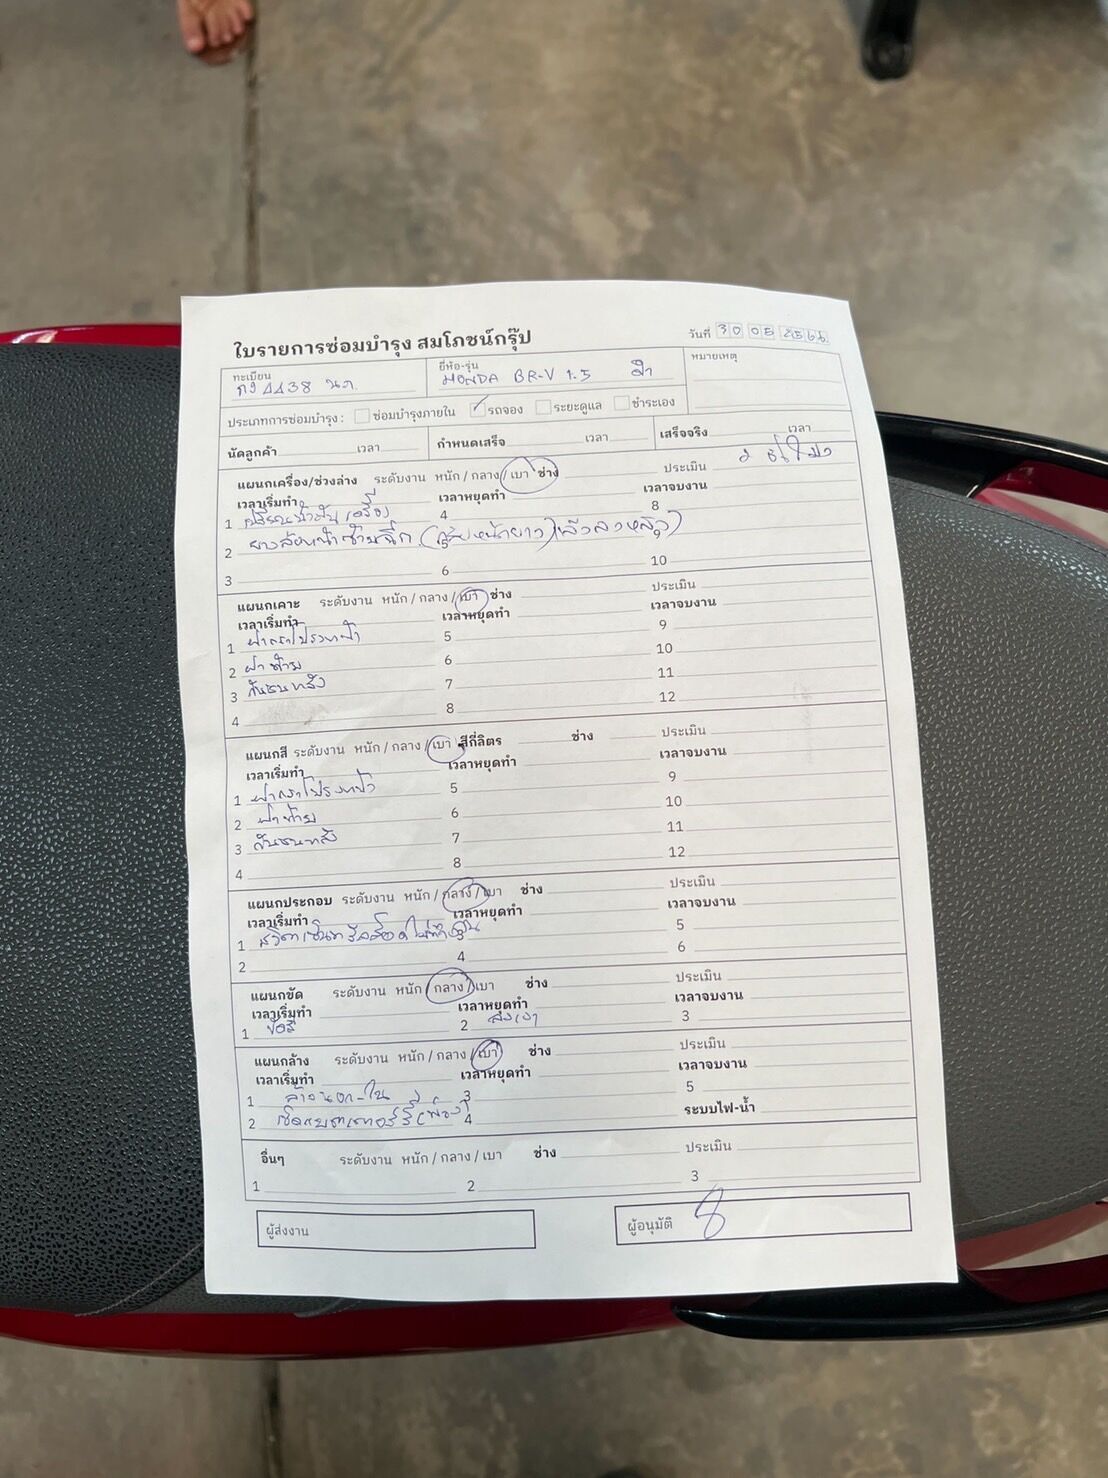 ใบรายการซ่อมบำรุง สมโภชน์กรุ๊ป
วันที่ 30 05 2566
ทะเบียน 4438 นภ.
ยี่ห้อ-รุ่น HONDA BR-V 1.5 ดำ
หมายเหตุ
ประเภทการซ่อมบำรุง : ซ่อมบำรุงภายใน รถจอง ระยะดูแล ชำระเอง
นัดลูกค้า เวลา กำหนดเสร็จ เวลา เสร็จจริง เวลา
แผนกเครื่อง/ช่วงล่าง ระดับงาน หนัก / กลาง / เบา ช่าง ประเมิน 2 ชั่วโมง
เวลาเริ่มทำ เวลาหยุดทำ เวลาจบงาน
1 เปลี่ยนน้ำมันเครื่อง 4 8
2 ยางล้อหน้าซ้ายฉีก
3 6 10
แผนกเคาะ ระดับงาน หนัก / กลาง / เบา ช่าง ประเมิน
เวลาเริ่มทำ เวลาหยุดทำ เวลาจบงาน
1 ฝากระโปรงหน้า 5 9
2 ฝาท้าย 6 10
3 กันชนหลัง 7 11
4 8 12
แผนกสี ระดับงาน หนัก / กลาง / เบา สีกี่ลิตร ช่าง ประเมิน
เวลาเริ่มทำ เวลาหยุดทำ เวลาจบงาน
1 ฝากระโปรงหน้า 5 9
2 ฝาท้าย 6 10
3 กันชนหลัง 7 11
4 8 12
แผนกประกอบ ระดับงาน หนัก / กลาง / เบา ช่าง ประเมิน
เวลาเริ่มทำ เวลาหยุดทำ เวลาจบงาน
1 สวิตเซ็นทรัลล็อคไม่ทำงาน 5
2 4 6
แผนกขัด ระดับงาน หนัก / กลาง / เบา ช่าง ประเมิน
เวลาเริ่มทำ เวลาหยุดทำ เวลาจบงาน
1 ขัดสี 2 ลงเงา 3
แผนกล้าง ระดับงาน หนัก / กลาง / เบา ช่าง ประเมิน
เวลาเริ่มทำ เวลาหยุดทำ เวลาจบงาน
1 ล้างนอก-ใน 3 5
2 เช็คแบตเตอร์รี่ 4 ระบบไฟ-น้ำ
อื่นๆ ระดับงาน หนัก / กลาง / เบา ช่าง ประเมิน
1 2 3
ผู้ส่งงาน ผู้อนุมัติ